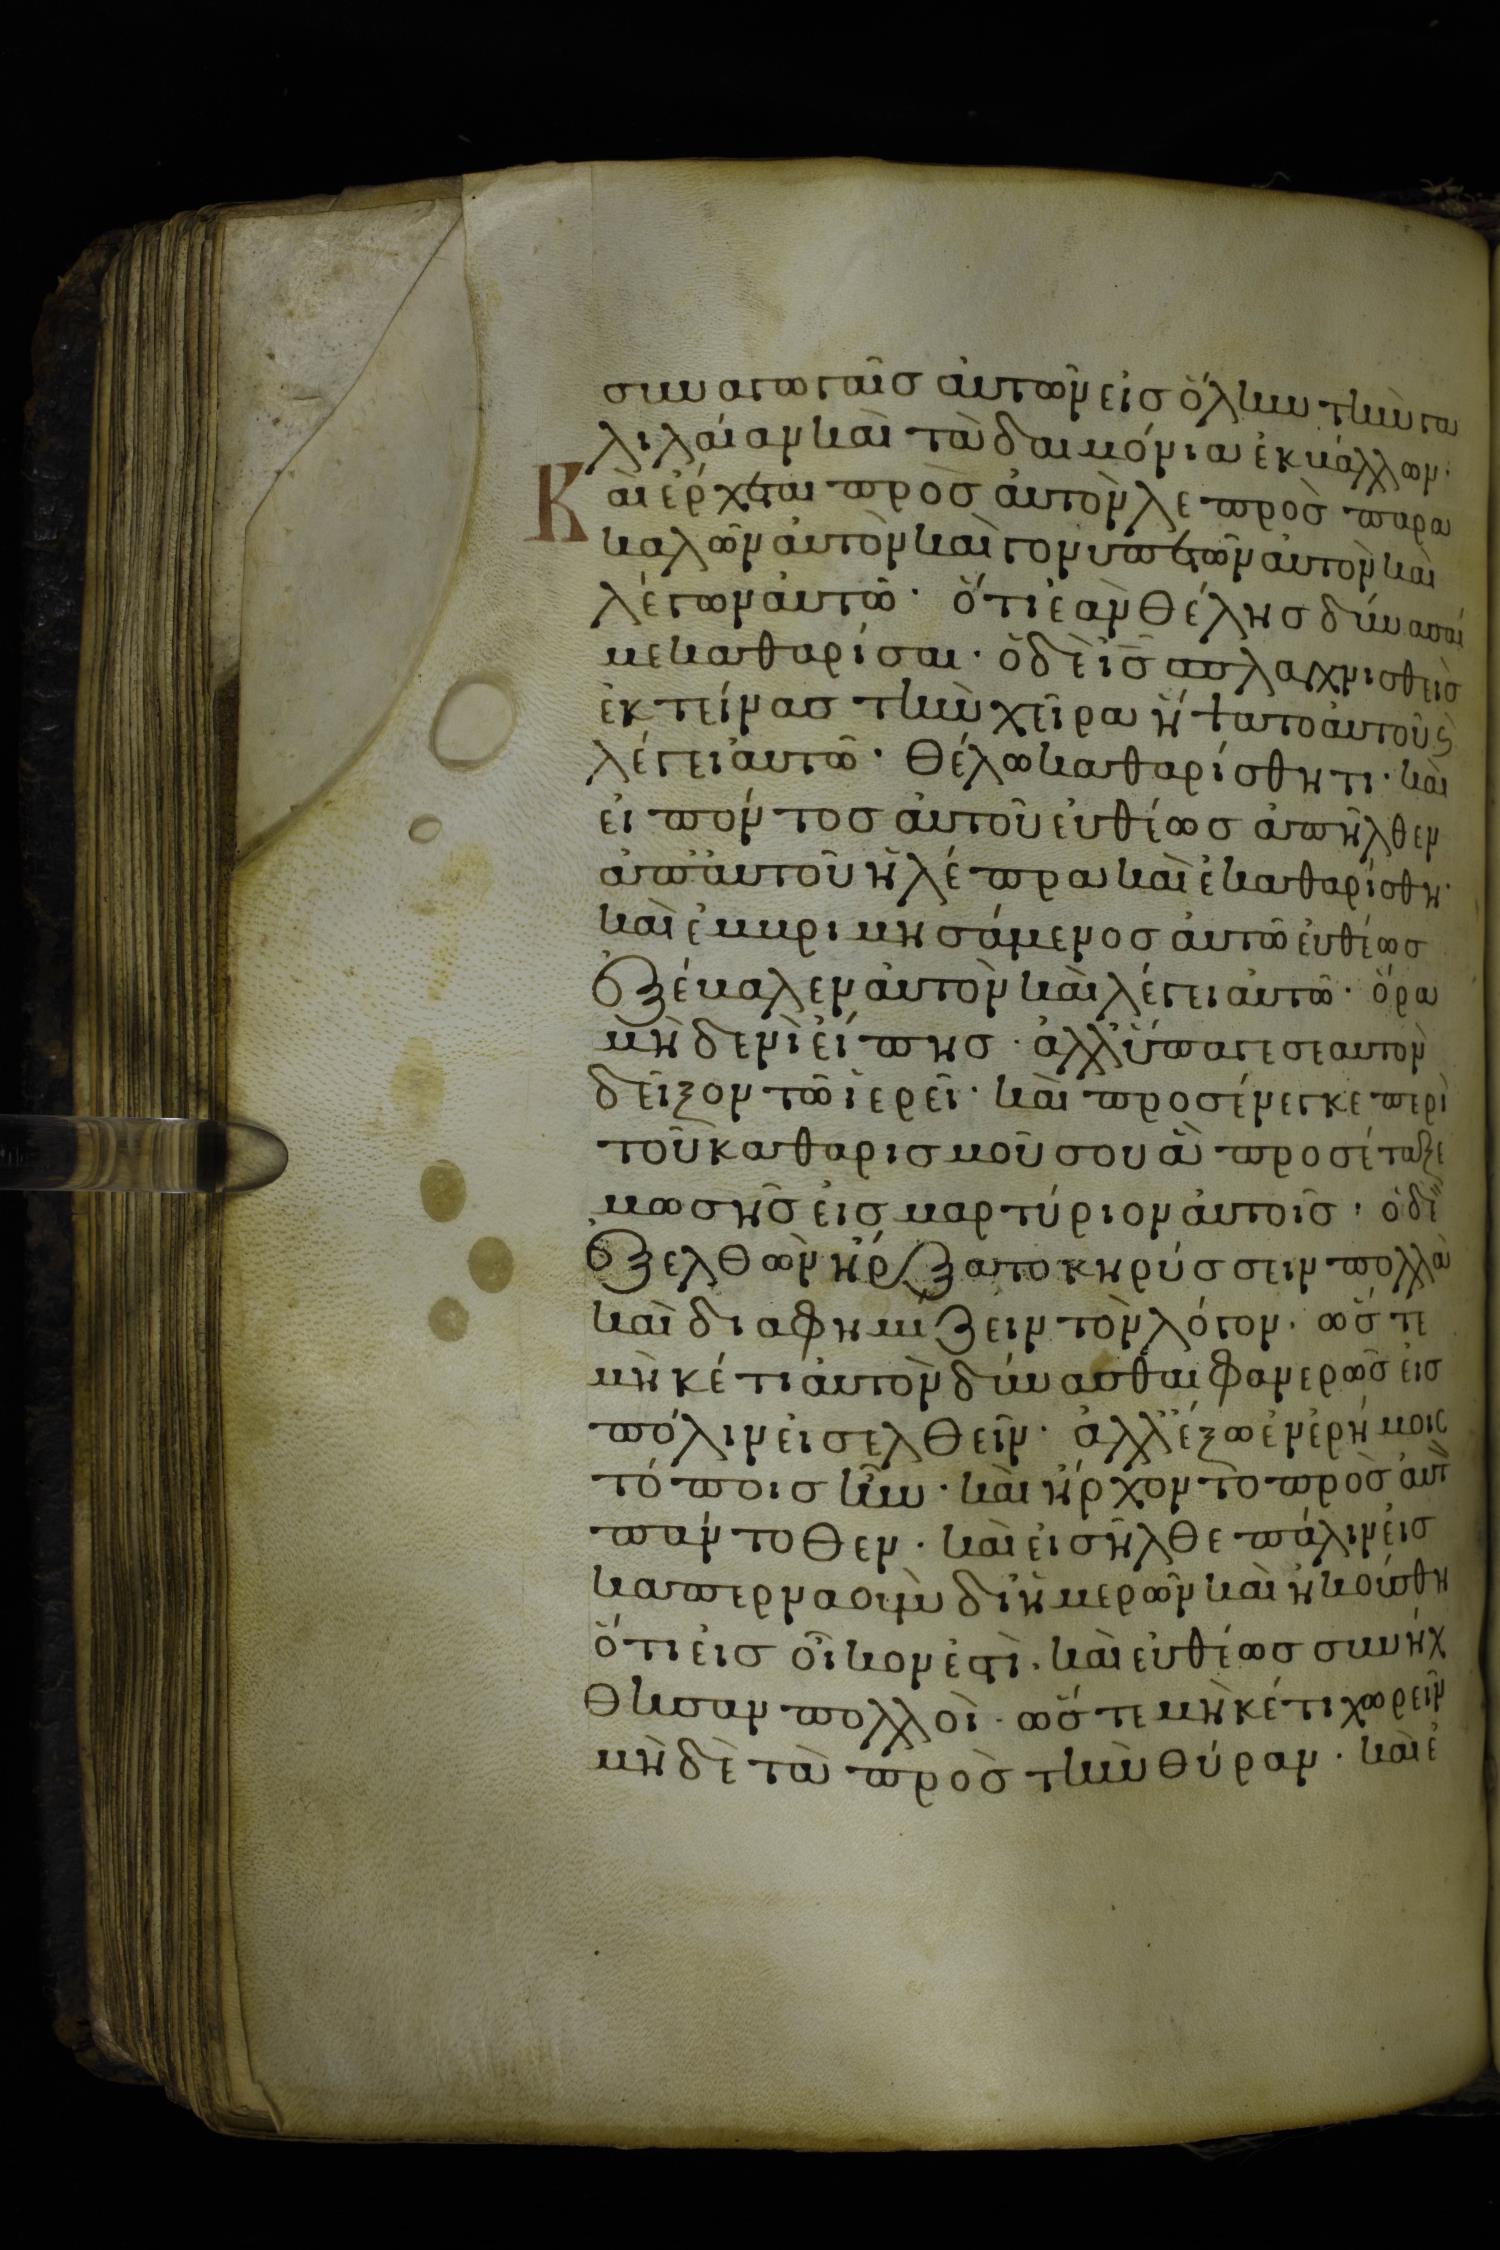 συναγωγαῖσ ἀυτῶν εἰσ ὅλην τὴν γα
λιλάιαν καὶ τὰ δαιμόνια ἐκβάλλων·
Καὶ ἐρχεται πρὸσ ἀυτὸν λεπρὸσ παρα
καλῶν ἀυτὸν καὶ γονυπετῶν ἀυτὸν καὶ
λέγων ἀυτῶ· ὅτι ἐὰν θέλησ δύνασαί
με καθαρίσαι· ὁ δὲ ἰ̅σ̅ σπλαγχνισθεὶσ
ἐκτείνασ τὴν χεῖρα ἥψατο ἀυτοῦ ϗ
λέγει ἀυτῶ· θέλω καθαρίσθητι· καὶ
εἰπόντοσ ἀυτοῦ ἐυθέωσ ἀπῆλθεν
ἀπ' ἀυτοῦ ἡ λέπρα καὶ ἐκαθαρίσθη·
καὶ ἐμβριμησάμενοσ ἀυτῶ ἐυθέωσ
ἐξέβαλεν ἀυτὸν καὶ λέγει ἀυτῶ· ὅρα
μὴδενὶ εἴπησ· ἀλλ' ὕπαγε σεαυτὸν
δεῖξον τῶ ἱερεῖ· καὶ προσένεγκε περὶ
τοῦ καθαρισμοῦ σου ἃ προσέταξε
μωσῆσ εἰσ μαρτύριον ἀυτοῖσ· ὁ δὲ
ἐξελθὼν ἤρξατο κηρύσσειν πολλὰ
καὶ διαφημίζειν τὸν λόγον· ὥστε
μὴκέτι ἀυτὸν δύνασθαι φανερῶσ εἰσ
πόλιν εἰσελθεῖν· ἀλλ' ἔξω ἐν ἐρήμοισ
τόποισ ἦν· καὶ ἤρχοντο πρὸσ ἀυτ
πάντοθεν· καὶ εἰσῆλθε πάλιν εἰσ
καπερναοὺμ δι' ἡμερῶν καὶ ἠκούσθη
ὅτι εἰσ οἶκον ἐστὶ· καὶ ἐυθέωσ συνήχ
θησαν πολλοὶ· ὥστε μὴκέτι χωρεῖν
μὴδὲ τὰ πρὸσ τὴν θύραν· καὶ ἐ